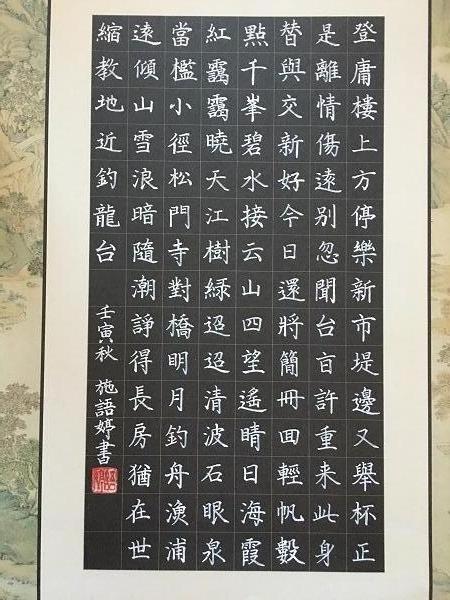 登庸樓上方停樂新市堤邊又舉杯正
是離情傷遠別忽聞台許重来此身
替與交新好今日還將簡冊回輕帆轂
點千峯碧水接云山四望遙晴日海霞
紅靄靄曉天江樹綠迢迢清波石眼泉
當檻小徑松門寺對橋明月釣舟漁浦
遠傾山雪浪暗隨潮諍得長房猶在世
縮教地近釣龍台
壬寅秋 施語婷書